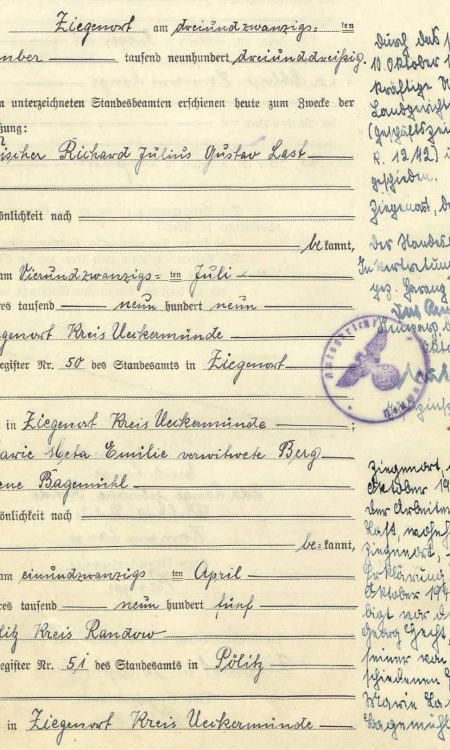 Ziegenort am dreiundzwanzigs= ten
mber tausend neunhundert dreiunddreißig.
m unterzeichneten Standesbeamten erschienen heute zum Zwecke der
ßung:
ischer Richard Julius Gustav Last
önlichkeit nach
be kannt,
am Vierundzwanzigs= ten Juli
res tausend neun hundert neun
egenort Kreis Ueckermünde
egister Nr. 50 des Standesamts in Ziegenort
in Ziegenort Kreis Ueckermünde ;
arie Meta Emilie verwitwete Berg
ene Bagemühl
önlichkeit nach
be=kannt,
am einundzwanzigs ten April
res tausend neun hundert fünf
litz Kreis Randow
egister Nr. 51 des Standesamts in Pölitz
in Ziegenort Kreis Ueckermünde
durch das
10 Oktober
kräftige
Landgericht
(Geschäftszei
R. 12/12) i
geschieden.
Ziegenort, d
Der Standes
In Vertretung
gez.
Ziegenort,
Oktober 19
der Arbeiter
Last, wohnh
Ziegenort,
Erklärung
Oktober 19
bigt vor d
Georg
seiner von
schiedenen
Marie La
Bagemühl